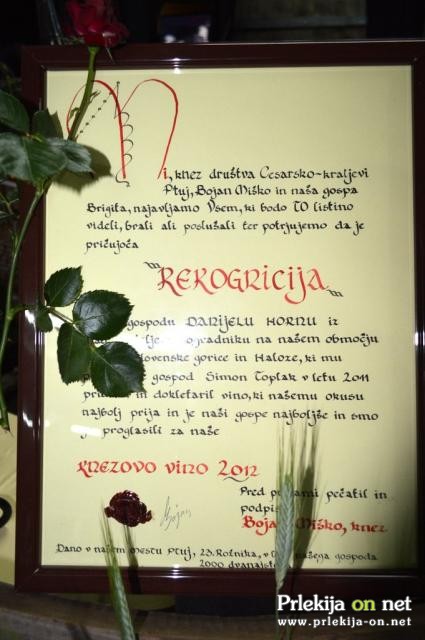 Mi, knez društva Cesarsko-kraljevi
Ptuj, Bojan Miško in naša gospa
Brigita, najavljamo Vsem, ki bodo TO listino
videli, brali ali poslušali ter potrjujemo da je
pričujoča
REKOGRICIJA
gospodu DANIJELU HORNU iz
ogradniku na našem območju
Slovenske gorice in Haloze, ki mu
gospod Simon Toplak v letu 2011
in dokletaril vino, ki našemu okusu
najbolj prija in je naši gospe najboljše in smo
ga proglasili za naše
KNEZOVO VINO 2012
Pred pečatil in
podpis
Bojan Miško, knez
Bojan
Dano v našem mestu Ptuj, 23. Rožnika, v našega gospoda
2000 dvanajst
Prlekija on net
www.prlekija-on.net